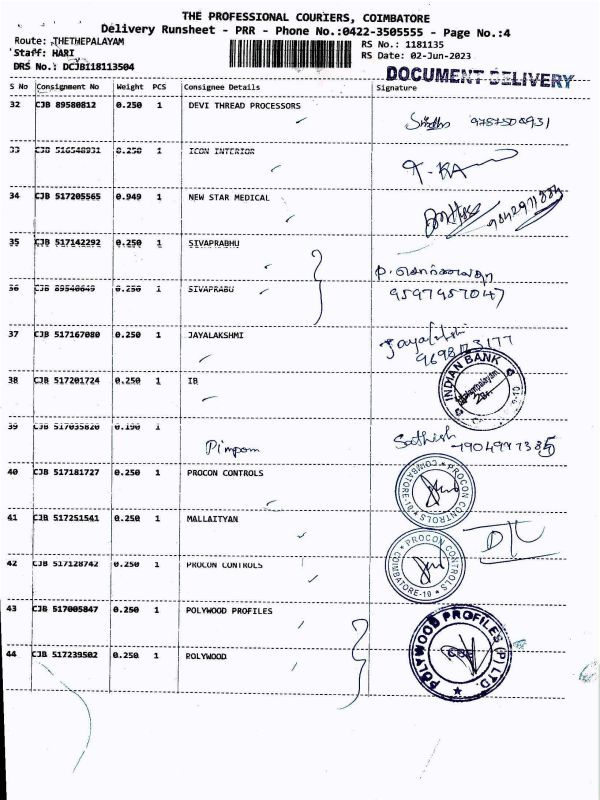 THE PROFESSIONAL COURIERS, COIMBATORE
Delivery Runsheet - PRR - Phone No.:0422-3505555 - Page No.:4
Route: THETHEPALAYAM
RS No.: 1181135
Staff: HARI
RS Date: 02-Jun-2023
DRS No.: DCJB118113504
DOCUMENT DELIVERY
S No Consignment No Weight PCS Consignee Details Signature
32 CJB 89580812 0.250 1 DEVI THREAD PROCESSORS
33 CJB 516548931 0.250 1 ICON INTERIOR
34 CJB 517205565 0.949 1 NEW STAR MEDICAL
35 CJB 517142292 0.250 1 SIVAPRABHU
36 CJB 89540649 0.250 1 SIVAPRABU
9597957047
37 CJB 517167080 0.250 1 JAYALAKSHMI Jayalakshi
INDIAN BANK
38 CJB 517201724 0.250 1 IB
39 CJB 517035820 0.190 1
Pimpom Sathish
40 CJB 517181727 0.250 1 PROCON CONTROLS
PROCON CONTROLS COIMBATORE-19
41 CJB 517251541 0.250 1 MALLAITYAN
42 CJB 517128742 0.250 1 PROCON CONTROLS
PROCON CONTROLS COIMBATORE-19
43 CJB 517005847 0.250 1 POLYWOOD PROFILES
POLYWOOD PROFILES (P) LTD.
44 CJB 517239502 0.250 1 POLYWOOD